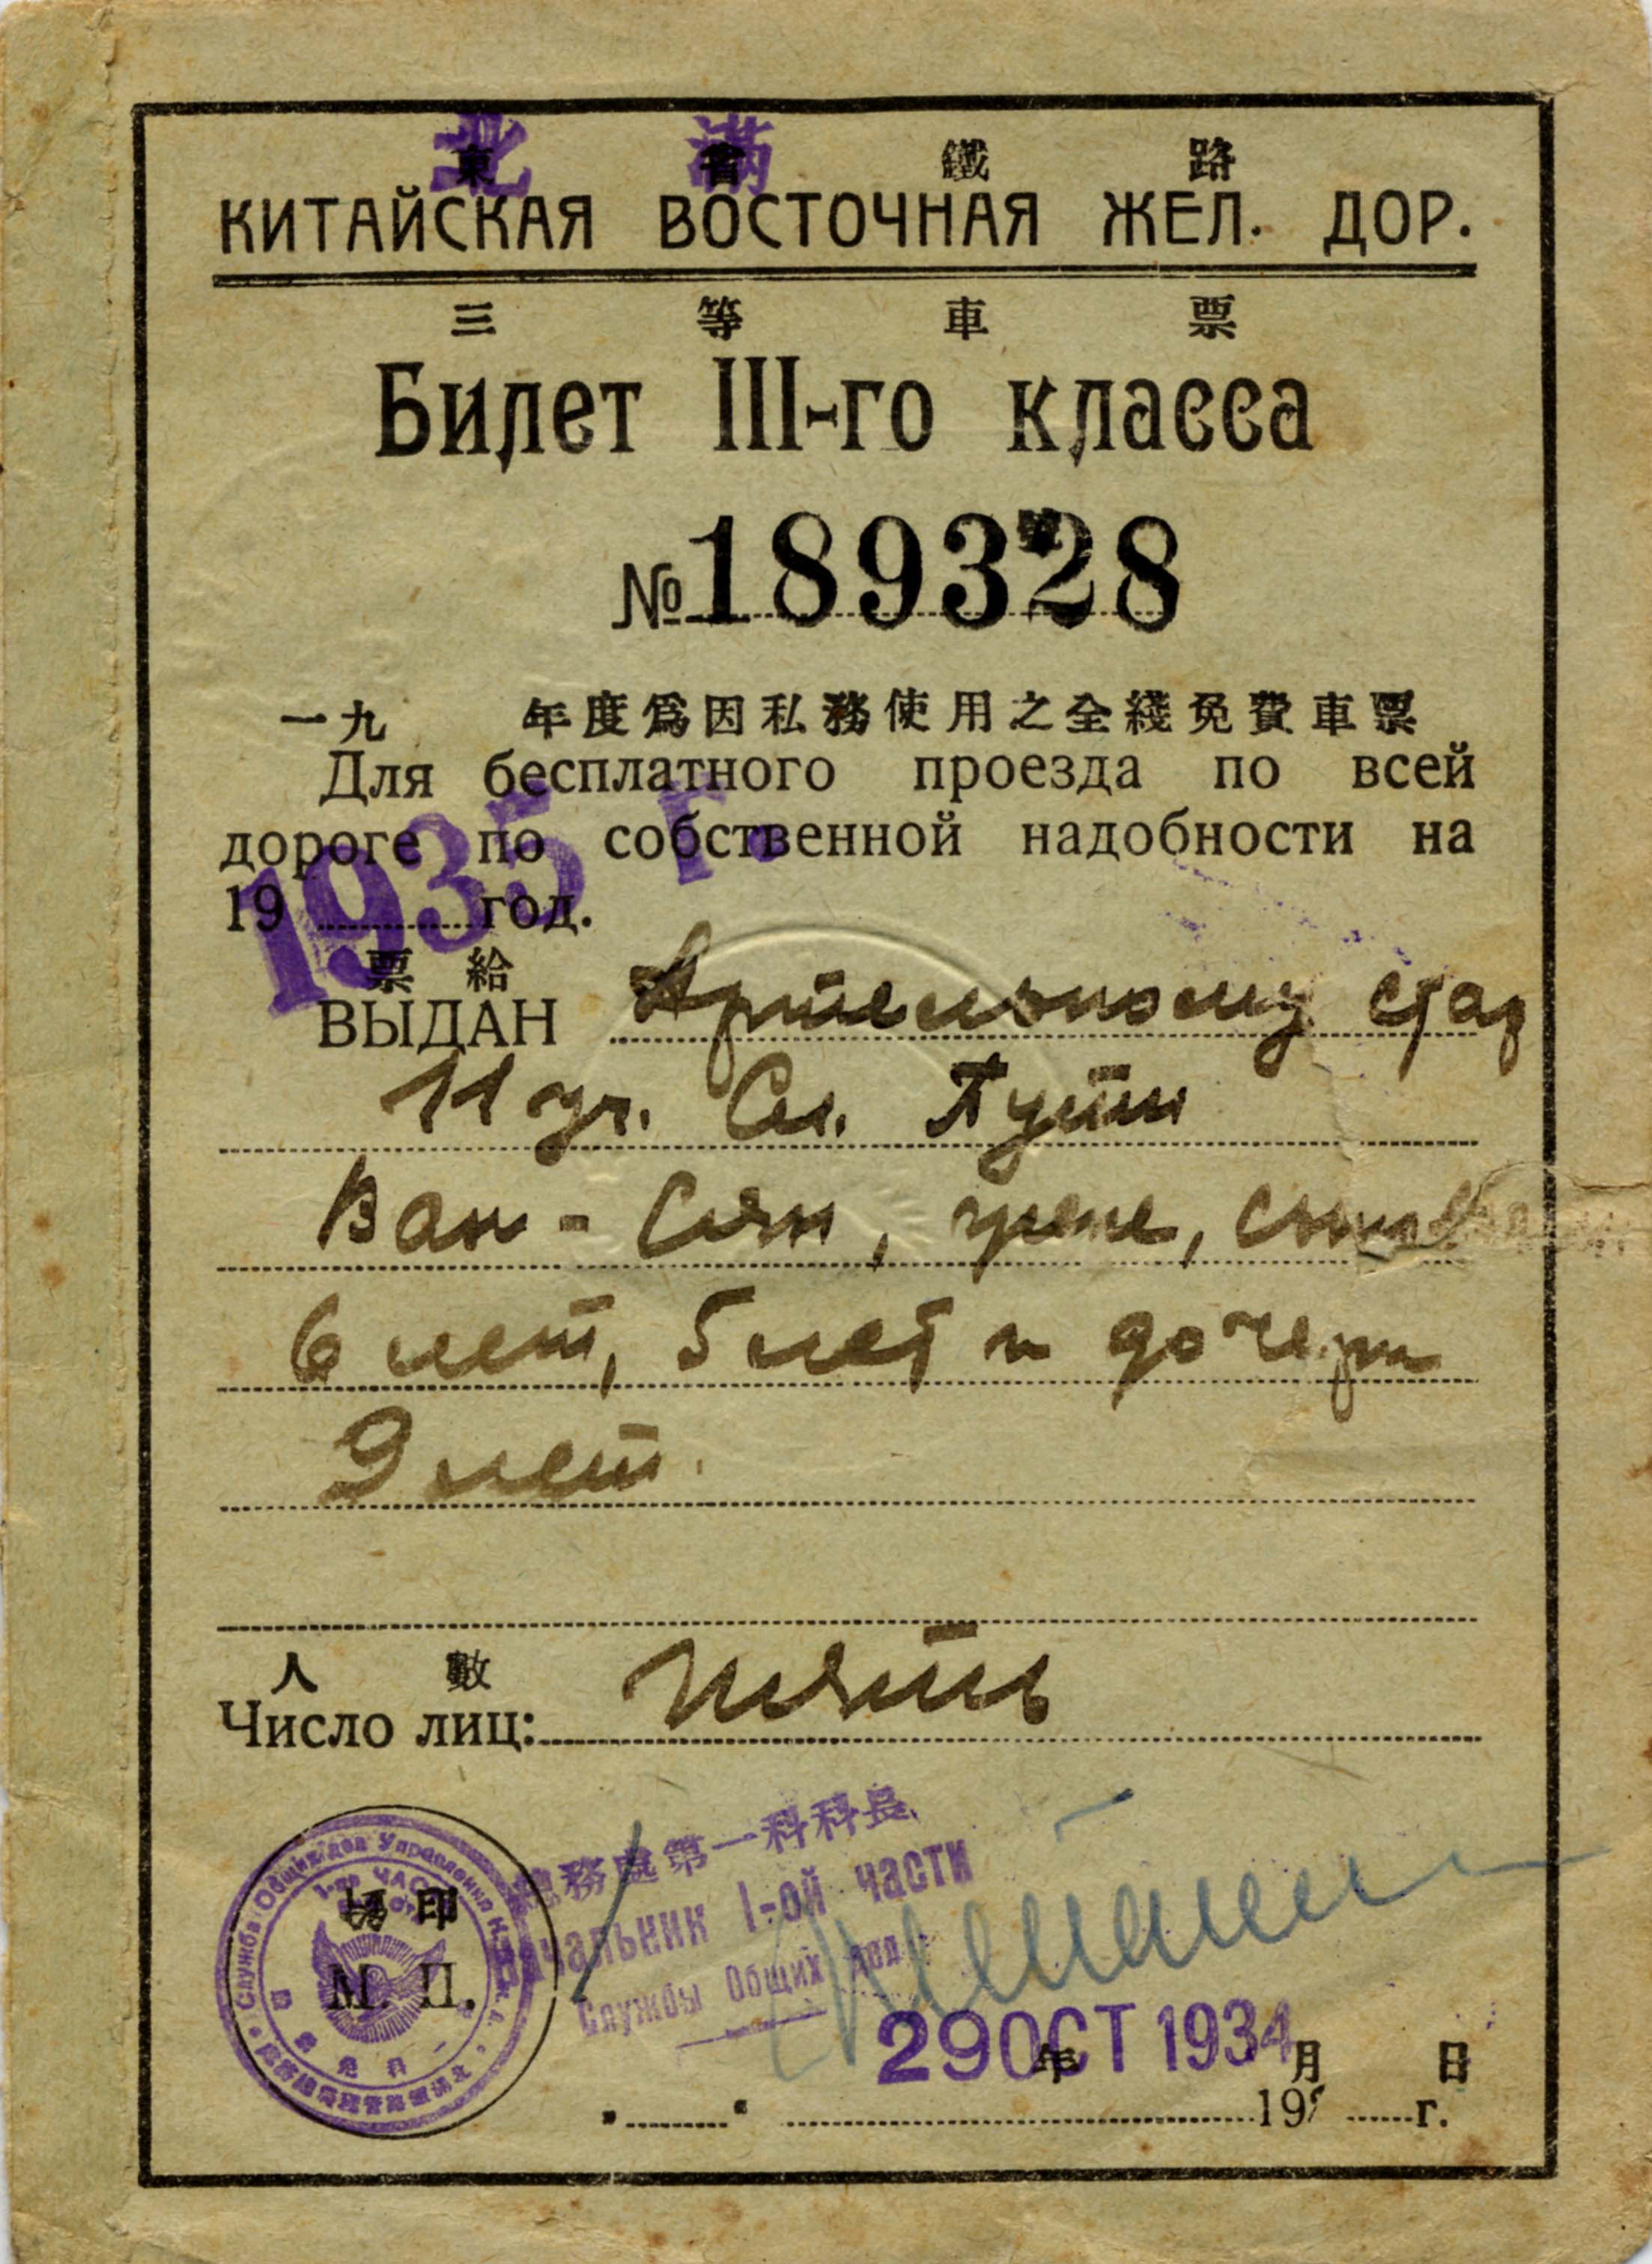 北 滿
東 省 鐵 路
КИТАЙСКАЯ ВОСТОЧНАЯ ЖЕЛ. ДОР.
三 等 車 票
Билет III-го класса
№ 189328
一九 年度爲因私務使用之全綫免費車票
Для бесплатного проезда по всей
дороге по собственной надобности на
19 год.
1935 г.
票 給
ВЫДАН Артельному стар
11 уч. Сл. Пути
Ван-Сян, жене, сынов
6 лет, 5 лет и дочери
9 лет.
人 數
Число лиц: пять
務處第一科科長
Начальник I-ой части
Службы Общих дел
Служба Общих дел Управления
印
М. П.
29 OCT 1934
年 月 日
19 г.